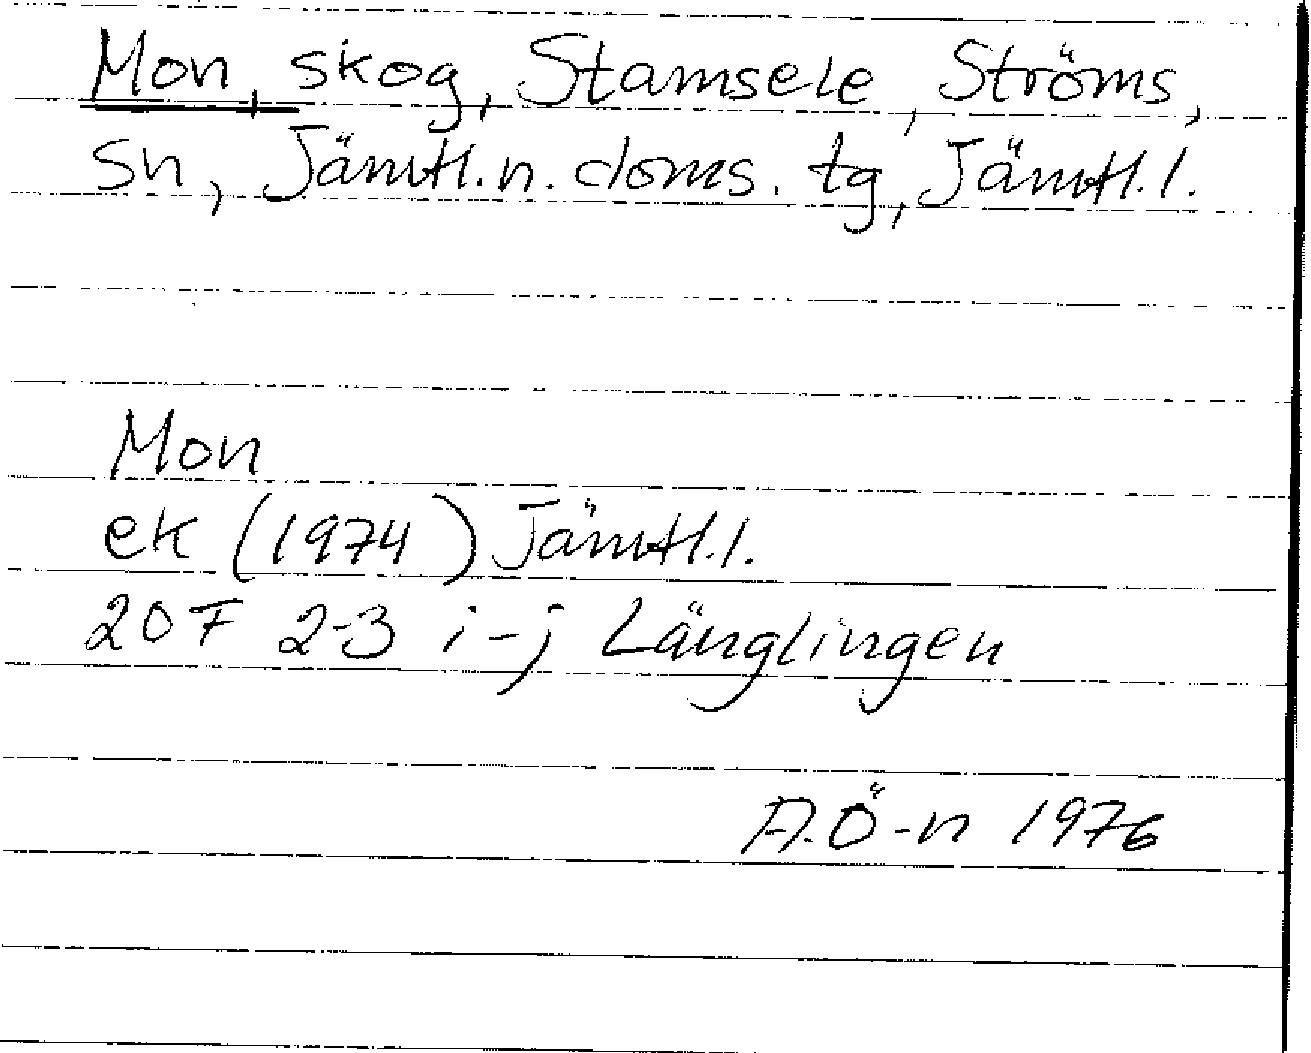 Mon, skog, Stamsele, Ströms,
Sn, Jämtl.n. doms. tg, Jämtl.l.
Mon
ek (1974) Jämtl.l.
20F 2-3 i-j Länglingen
A.Ö-n 1976